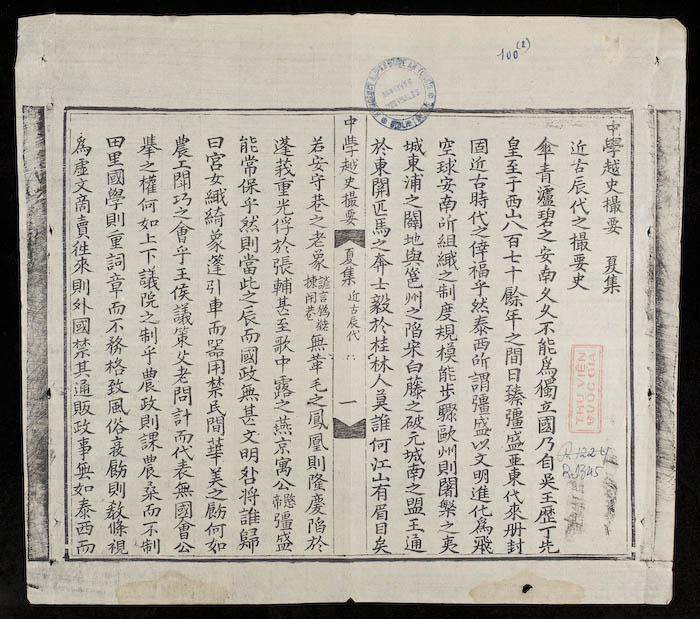 100 (2)
中學越史撮要 夏集
近古辰代之撮要史
傘青瀘碧之安南久久不能爲獨立國乃自吳王歷丁先
皇至于西山八百七十餘年之間日臻彊盛亜東代來册封
固近古時代之倖福乎然泰西所謂彊盛以文明進化爲飛
空球安南所組織之制度規模能步驟歐州則闍槃之夷
城東浦之闢地與邕州之陷宋白藤之破元城南之盟王通
於東關匹馬之奔士毅於桂林人莫誰何江山有眉目矣
中學越史撮要 夏集 近古辰代 一
若安守巷之老象諺言 無華毛之鳳凰則隆慶陷於
蓬莪重光俘於張輔甚至歌中露之燕京寓公愍帝彊盛
能常保乎然則當此之辰而國政無甚文明咎將誰歸
曰宮女織綺象蓬引車而器用禁民間華美之餙何如
農工開巧之會乎王侯議策父老問計而代表無國會公
舉之權何如上下議院之制乎農政則課農桑而不制
田里國學則重詞章而不務格致風俗餙則教條視
爲虛文商賣徃來則外國禁其通販政事無如泰西而
THƯ VIỆN
QUỐC GIA
R.1345